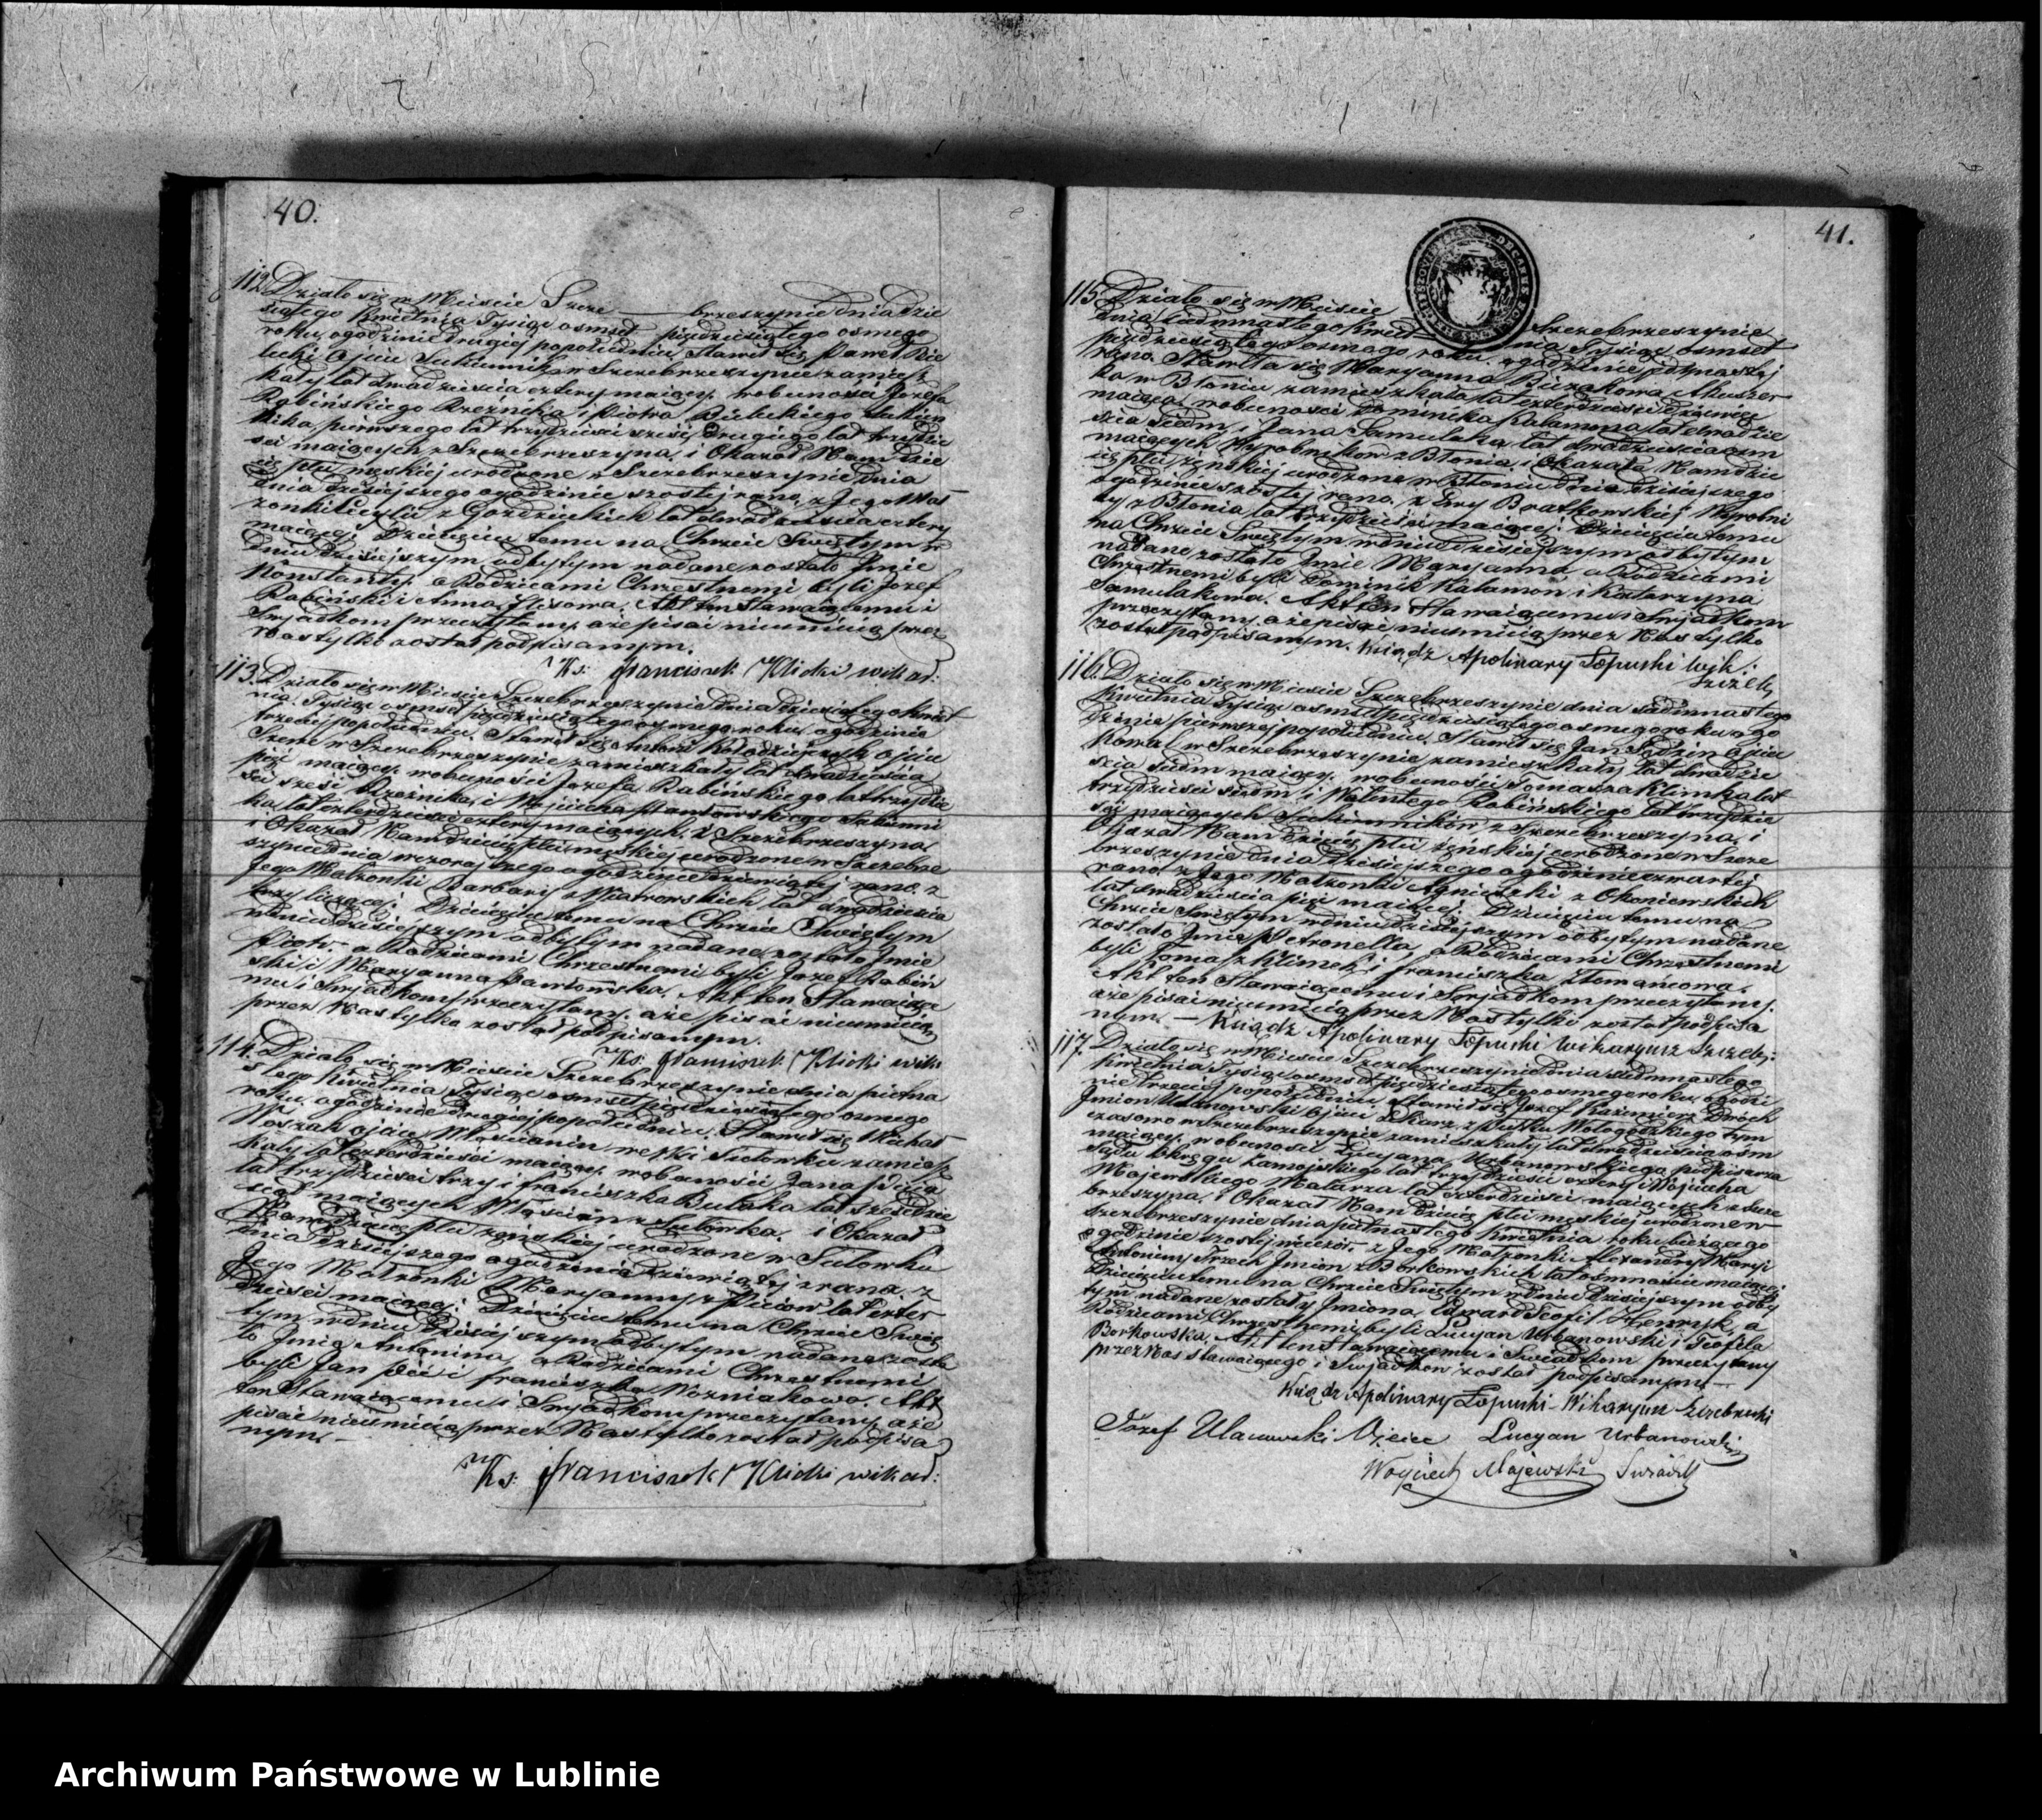 40.
112. Działo się w Mieście Szcze— brzeszynie dnia dzie
siątego Kwietnia Tysiąc osmset pięćdziesiątego osmego
roku, o godzinie drugiej popołudniu, Stawił się Paweł Bie
lecki Ojciec Sukiennik w Szczebrzeszynie zamiesz
kały lat dwadzieścia cztery maiący, w obecności Józefa
Rabińskiego Rzeźnika i Piotra Bieleckiego Sukien
nika, pierwszego lat trzydzieści sześć, drugiego lat trzydzie
ści maiących z Szczebrzeszyna, i Okazał Nam dzie
cię płci męskiej urodzone w Szczebrzeszynie dnia
dnia dzisiejszego o godzinie szostej rano, z Jego Mał
żonki Cecylii z Goździeckich lat dwadzieścia cztery
maiącej. Dziecięciu temu na Chrzcie Świętym w
dniu dzisiejszym odbytym nadane zostało Jmie
Konstanty, a Rodzicami Chrzestnemi byli Józef
Rabiński i Anna . Akt ten Stawaiącemu i
Świadkom przeczytany, a że pisać nieumieią przez
Nas tylko został podpisanym.
Ks: Franciszek Klicki wikar:
113. Działo się w Mieście Szczebrzeszynie dnia dziesiątego Kwiet
nia Tysiąc osmset pięćdziesiątego osmego roku, o godzinie
trzeciej popołudniu. Stawił się Antoni Kołodziejczyk ojciec
Szewc w Szczebrzeszynie zamieszkały lat dwadzieścia
pięć maiący, w obecności Józefa Rabińskiego lat trzydzie
ści sześć Rzeźnika, i Wojciecha Pawłowskiego Sukienni
ka, lat czterdzieści cztery maiących, z Szczebrzeszyna
i Okazał Nam dziecię płci męskiej urodzone w Szczebrze
szynie dnia wczorajszego o godzinie dziewiątej rano, z
Jego Małżonki Barbary z lat dwadzieścia
trzy liczącej. Dziecięciu temu na Chrzcie Świętym
w dniu dzisiejszym odbytym nadane zostało Jmie
Piotr, a Rodzicami Chrzestnemi byli Józef Rabiń
ski i Maryanna Pawłowska. Akt ten Stawaiące
mu i Świadkom przeczytany, a że pisać nieumieią
przez Nas tylko został podpisanym.
Ks: Franciszek Klicki wik:
114. Działo się w Mieście Szczebrzeszynie dnia piętna
stego Kwietnia Tysiąc osmset pięćdziesiątego osmego
roku, o godzinie drugiej popołudniu. Stawił się Michał
Woźniak ojciec Włościanin w wsi Sułowku zamiesz
kały lat czterdzieści maiący, w obecności Jana Pica
lat trzydzieści trzy i Franciszka Bulaka lat sześćdzie
siąt maiących Włościan z Sułowka. i Okazał
Nam dziecię płci żeńskiej urodzone w Sułowku
dnia dzisiejszego o godzinie dziewiątej z rana, z
Jego Małżonki Maryanny z Piców lat czter
dzieści maiącej. Dziecięciu temu na Chrzcie Świę
tym w dniu dzisiejszym odbytym nadane zosta
ło Jmie Antonina, a Rodzicami Chrzestnemi
byli Jan Pic i Franciszka Woźniakowa. Akt
ten Stawaiącemu i Świadkom przeczytany, a że
pisać nieumieią, przez Nas tylko został podpisa
nym. —
Ks: Franciszek Klicki wikar:
41.
115. Działo się w Mieście Szczebrzeszynie
dnia siedmnastego Kwietnia Tysiąc osmset
pięćdziesiątego osmego roku. o godzinie jedenastej
rano. Stawiła się Maryanna Akuszer
ka w Błoniu zamieszkała lat czterdzieści dziewięć
maiąca, w obecności Dominika Kałamona lat dwadzie
ścia siedm, i Jana Samulaka, lat dwadzieścia osm
maiących Wyrobników z Błonia, i Okazała Nam dzie
cię płci żeńskiej urodzone w Błoniu dnia dzisiejszego
o godzinie szostej rano, z Ewy Bratkowskiej Wyrobni
cy z Błonia lat trzydzieści maiącej. Dziecięciu temu
na Chrzcie Świętym w dniu dzisiejszym odbytym
nadane zostało Jmie Maryanna a Rodzicami
Chrzestnemi byli Dominik Kałamon i Katarzyna
Samulakowa. Akt ten Stawaiącemu i Świadkom
przeczytany, a że pisać nieumieią przez Nas tylko
został podpisanym. Ksiądz Apolinary Łopuski Wik:
Szczeb.
116. Działo się w Mieście Szczebrzeszynie dnia siedmnastego
Kwietnia Tysiąc osmset pięćdziesiątego osmego roku o go
dzinie pierwszej popołudniu. Stawił się Jan Ojciec
Kowal w Szczebrzeszynie zamieszkały lat dwadzie
ścia siedm maiący, w obecności Tomasza Klimka lat
trzydzieści siedm i Walentego Rabińskiego lat trzydzie
ści maiących Sukienników z Szczebrzeszyna, i
Okazał Nam dziecię płci żeńskiej urodzone w Szcze
brzeszynie dnia dzisiejszego o godzinie czwartej
rano, z Jego Małżonki Agnieszki z Okoniewskich
lat dwadzieścia pięć maiącej. Dziecięciu temu na
Chrzcie Świętym w dniu dzisiejszym odbytym nadane
zostało Jmie Petronella, a Rodzicami Chrzestnemi
byli Tomasz Klimek i Franciszka .
Akt ten Stawaiącemu i Świadkom przeczytany.
a że pisać nieumieią przez Nas tylko został podpisa
nym. — Ksiądz Apolinary Łopuski Wikaryusz Szczeb:
117. Działo się w Mieście Szczebrzeszynie dnia siedmnastego
Kwietnia Tysiąc osmset pięćdziesiątego osmego roku, o godzi
nie trzeciej popołudniu, Stawił się Józef Kazimierz Dwóch
Jmion Ulanowski Ojciec Lekarz z Pułku Wołogodzkiego tym
czasowo w Szczebrzeszynie zamieszkały lat dwadzieścia osm
maiący. w obecności Lucyana Urbanowskiego podpisarza
Sądu Okręgu Zamojskiego lat trzydzieści cztery i Wojciecha
Majewskiego Malarza lat czterdzieści maiących z Szcze
brzeszyna, i Okazał Nam dziecię płci męskiej urodzone w
Szczebrzeszynie dnia piętnastego Kwietnia roku bieżącego
o godzinie szostej wieczór. z Jego Małżonki Alexandry Maryi
Antoniny Trzech Jmion z Borkowskich lat osmnaście maiącej
Dziecięciu temu na Chrzcie Świętym w dniu dzisiejszym odby
tym nadane zostały Jmiona, Edward Teofil Henryk, a
Rodzicami Chrzestnemi byli Lucyan Urbanowski i Teofila
Borkowska. Akt ten Stawaiącemu i Świadkom przeczytany
przez Nas Stawaiącego i Świadków został podpisanym. —
Ksiądz Apolinary Łopuski Wikaryusz Szczebrzeski
Józef Ulanowski Ojciec Lucyan Urbanowski
Wojciech Majewski Świadek
Archiwum Państwowe w Lublinie